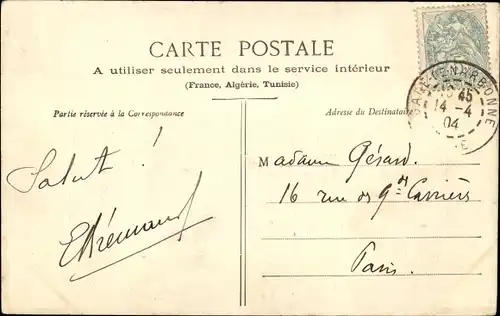 CARTE POSTALE
A utiliser seulement dans le service intérieur
(France, Algérie, Tunisie)
Partie réservée à la Correspondance
Adresse du Destinataire
GARE DE NARBONNE
45
14 -4
04
Salut !
Madame Gérard.
16 rue des Gdes Carrières
Paris.